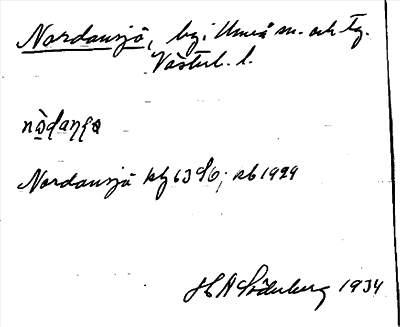 Nordansjö, by i Umeå sn. och tg.
Västerb. l.
Nordansjö kbl 63 ; sb 1929
H A Söderberg 1934